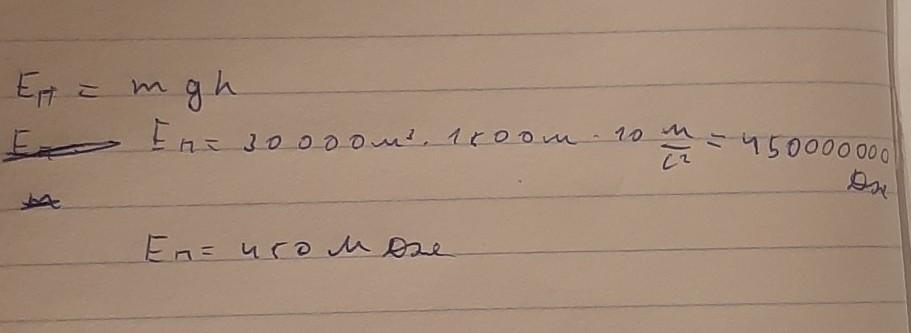 Eп = mgh
Eп = 30000 м³ · 1500 м · 10 м/с² = 450000000
Дж
Eп = 450 М Дж